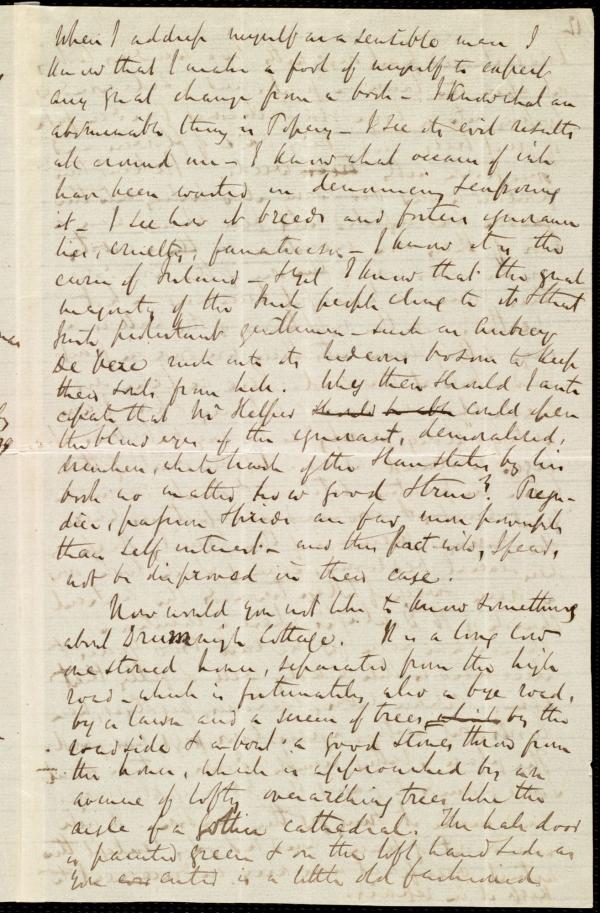 12
When I address myself as a sensible man I
know that I make a fool of myself to expect
any great change from a book – I know what an
abominable thing is Popery – I see its evil results
all around me – I know what oceans of ink
have been wasted in denouncing & exposing
it – I see how it breeds and fosters ignorance
lies, cruelty, fanaticism – I know it is the
curse of Ireland – & yet I know that the great
majority of the Irish people cling to it & that
Irish protestant gentlemen – such as Aubrey
De Vere rush into its hideous bosom to keep
their souls from hell. Why then should I anti
cipate that Mr Helper should be able could open
the blind eyes of the ignorant, demoralised,
drunken, white trash of the Slave States by his
book no matter how good & true? Preju-
dice, passion & pride are far more powerful
than self interest – and this fact will, I fear,
not be disproved in their case.
Now would you not like to know something
about Drumnaigh Cottage. It is a long low
one storied house, separated from the high
road – which is fortunately also a bye road,
by a lawn and a screen of trees which by the
roadside & about a good stones throw from
the house, which is approached by an
avenue of lofty overarching trees like the
aisle of a Gothic cathedral. The hall door
is painted green & on the left hand side as
you enter is a little old fashioned